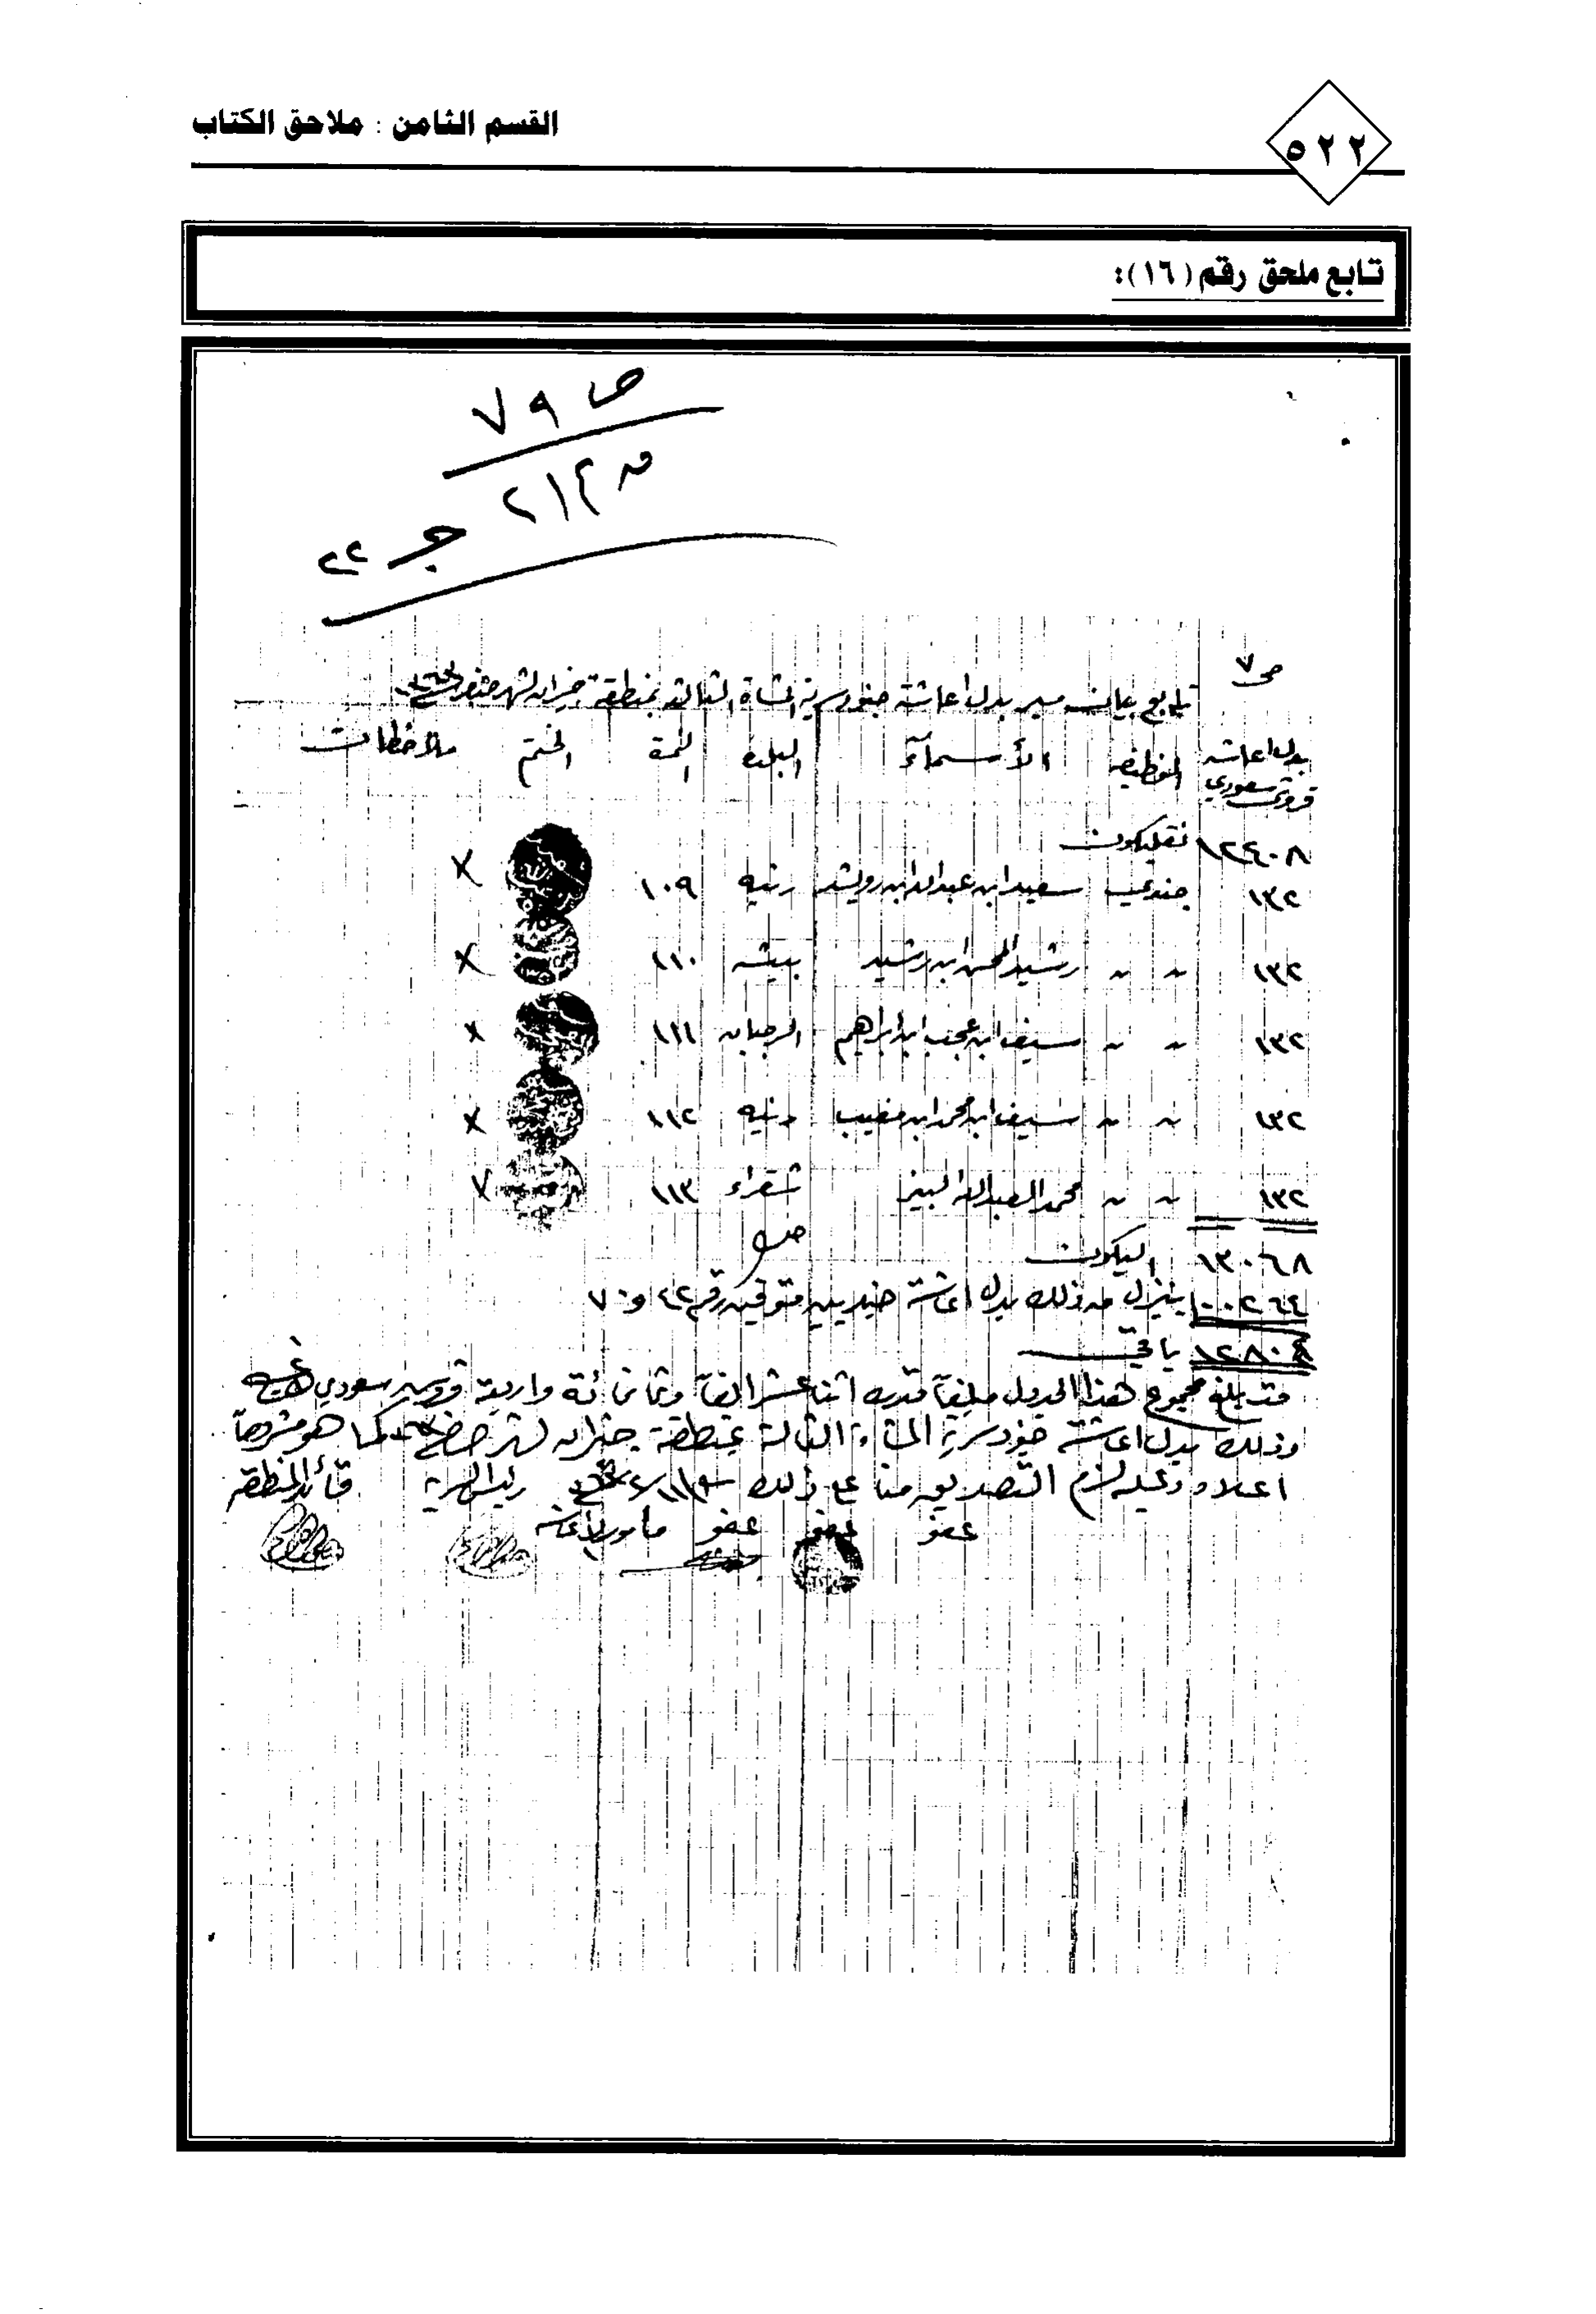 القسم الثامن : ملاحق الكتاب
٥٢٢
تابع ملحق رقم (١٦):
ص ٧٩
م ٢١٢
جـ ٢٢
ص ٧
تابع بيان مسير بدل اعاشة جنود سرية المشاة الثالثة بمنطقة جيزان لشهر صفر
بدل اعاشه قروش سعودي الوظيفه الأسماء البلده النمرة الختم ملاحظات
١٢٤٠٨ نقليكون
١٣٢ جندي سعيد ابن عبدالله ابن رويشد رنيه ١٠٩ X
١٣٢ " " رشيد المحسن ابن رشيد بيشه ١١٠ X
١٣٢ " " سيف ابن عجب ابن ابراهيم الرجبان ١١١ X
١٣٢ " " سيف ابن محمد ابن مغيب رنيه ١١٢ X
١٣٢ " " محمد العبدالله البيز شقراء ١١٣ ٧
١٣٠٦٨ اليكون
٠٠٢٦٤ ينزل من ذلك بدل اعاشة جنديين متوفين رقم ٤٢ و ٧٠
١٢٨٠٤ باقي
قد بلغ مجموع هذا الجدول مبلغاً قدره اثنا عشر الفاً وثمانمائة واربعة قروش سعودي
وذلك بدل اعاشة جنود سرية المشاة الثالثة بمنطقة جيزان لشهر صفر كما هو مشروحاً
اعلاه وعليه لزم التصديق منا على ذلك رئيس السرية قائد المنطقه
عضو عضو عضو مامور الاعاشه